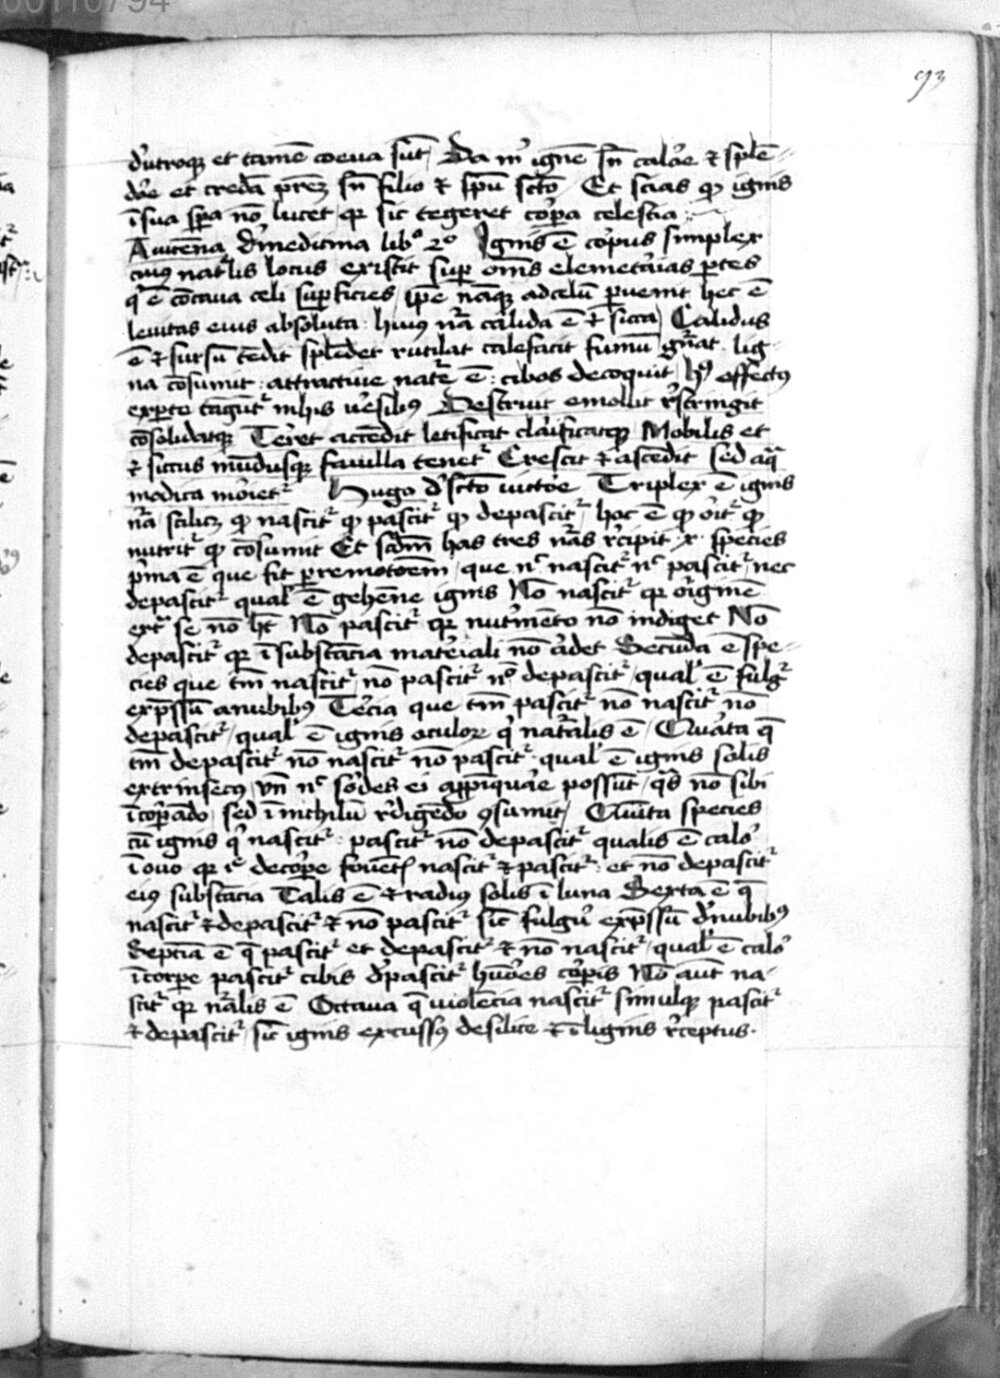 00110794
93
d'utroq; et tamē coeua sūt / Da m' ignē sn̄ calo'e ⁊ splē
do'e et credā prēz sn̄ filio ⁊ spū sc̄to Et scias qꝫ ignis
ī sua sp̄a nō lucet qr sic tegeret cor̄pa celestia
Auicēna d' medicina lib° 2° Ignis ē cor̄pus simplex
cuiꝰ natlis locus existit sup om̄s elemētaīas p̄tes
q' ē cōcaua celi supficies / ipe nāqꝫ ad celū p̄uenit hec ē
leuitas eius absoluta : huiꝰ nr̄a calida ē ⁊ sicca / Calidus
ē ⁊ sursū tēdit splēdet rutilat calefacit fumū gn̄at lig
na cōsumit : attractiue natē ē : cibos decoquit / hꝰ effectꝰ
ex p̄te tāgūt in his v'sibꝰ Destruit emollit r'stringit
cōsolidatqꝫ Teret accēdit letificat clarificatqꝫ Mobilis et
⁊ siccus mūdusqꝫ fauilla tenet Crescit ⁊ ascēdit sed aq̄
modica mo'iet Hugo d' sc̄to victo'e Triplex ē ignis
nr̄a scilicꝫ qꝫ nascit qꝫ pascit qꝫ depascit / hoc ē qꝫ orit qꝫ
nutrit qꝫ cōsumit Et scdm̄ has tres nr̄as r'cipit x species
p'ma ē que fit p̄ remotoem̄ / que n' nascit n' pascit / nec
depascit qual' ē gehēne ignis Nō nascit qr originē
extª se nō ht̄ Nō pascit qr nutrimēto nō indiget Nō
depascit qr ī substācia mate'iali nō a'det Secūda ē spe
cies que tm̄ nascit / nō pascit n° depascit / qual' ē fulg
exp̄ssū a nubibꝰ Te'cia que tm̄ pascit nō nascit nō
depascit / qual' ē ignis oculoꝝ q' natalis ē / Qua'ta q̄
tm̄ depascit nō nascit nō pascit qual' ē ignis solis
extrinsecꝰ / vn̄ n' so'des ei app̄īquare possūt / q̄s nō sibi
īcorp̄ādo / sed ī nichilū r'digēdo ꝯsumit / Quīta species
nascit pascit nō depascit qualis ē calo'
ī ouo qr decorpe nascit ⁊ pascit : et nō depascit
eiꝰ substācia Talis ē ⁊ radiꝰ solis ī luna Sexta ē q̄
nascit ⁊ depascit ⁊ nō pascit sic̄ fulgu' exp̄ssū d' nubibꝰ
Septīa ē q̄ pascit et depascit ⁊ nō nascit / qual' ē calo'
ī corpe pascit cibis d'pascit humo'es cor̄pis Nō aūt na
scit qr nr̄alis ē Octaua q̄ violēcia nascit simulqꝫ pascit
⁊ depascit / sic̄ ignis excussꝰ de silice ⁊ ī lignis r'ceptus